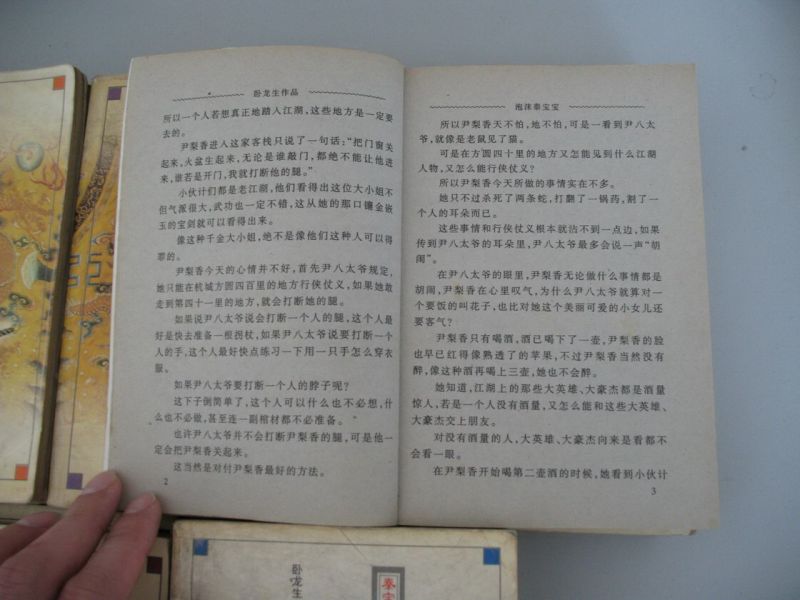 卧龙生作品
所以一个人若想真正地踏入江湖,这些地方是一定要
去的。
尹梨香进入这家客栈只说了一句话:“把门窗关
起来,火盆生起来,无论是谁敲门,都绝不能让他进
来,谁若是开门,我就打断他的腿。”
小伙计们都是老江湖,他们看得出这位大小姐不
但气派很大,武功也一定不错,这从她的那口镶金嵌
玉的宝剑就可以看得出来。
像这种千金大小姐,绝不是像他们这种人可以得
罪的。
尹梨香今天的心情并不好,首先尹八太爷规定,
她只能在杭城方圆四百里的地方行侠仗义,如果她敢
走到第四十一里的地方,就会打断她的腿。
如果说尹八太爷说会打断一个人的腿,这个人最
好是快去准备一根拐杖,如果尹八太爷说要打断一个
人的手,这个人最好快点练习一下用一只手怎么穿衣
服。
如果尹八太爷要打断一个人的脖子呢?
这下子倒简单了,这个人可以什么也不必想,什
么也不必做,甚至连一副棺材都不必准备。
也许尹八太爷并不会打断尹梨香的腿,可是他一
定会把尹梨香关起来。
这当然是对付尹梨香最好的方法。
2
泡沫秦宝宝
所以尹梨香天不怕,地不怕,可是一看到尹八太
爷,就像是老鼠见了猫。
可是在方圆四十里的地方又怎能见到什么江湖
人物,又怎么能行侠仗义?
所以尹梨香今天所做的事情实在不多。
她只不过杀死了两条蛇,打翻了一锅药,割了一
个人的耳朵而已。
这些事情和行侠仗义根本沾不到一点边,如果
传到尹八太爷的耳朵里,尹八太爷最多会说一声“胡
闹”。
在尹八太爷的眼里,尹梨香无论做什么事情都是
胡闹,尹梨香在心里叹气,为什么尹八太爷就算对一
个要饭的叫花子,也比对她这个美丽可爱的小女儿还
要客气?
尹梨香只有喝酒,酒已喝下了一壶,尹梨香的脸
也早已红得像熟透了的苹果,不过尹梨香当然没有
醉,像这种酒再喝上三壶,她也不会醉。
她知道,江湖上的那些大英雄、大豪杰都是酒量
惊人,若是一个人没有酒量,又怎么能和这些大英雄、
大豪杰交上朋友。
对没有酒量的人,大英雄、大豪杰向来是看都不
会看一眼。
在尹梨香开始喝第二壶酒的时候,她看到小伙计
3
卧龙生
秦宝